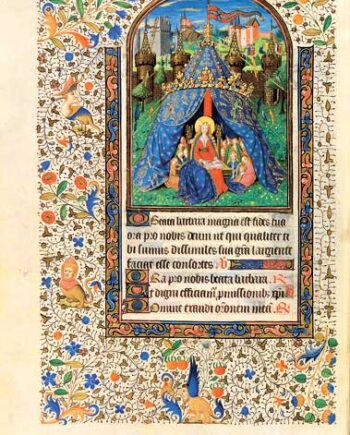 O Beata barbara magna est fides tua
ora pro nobis deum ut qui qualiter ti
bi sumus dissimiles sua gra largiente
faciat esse consortes
Ora pro nobis beata barbara. R
Ut digni efficiam pmissionib; xpi
Domine exaudi oronem meā.